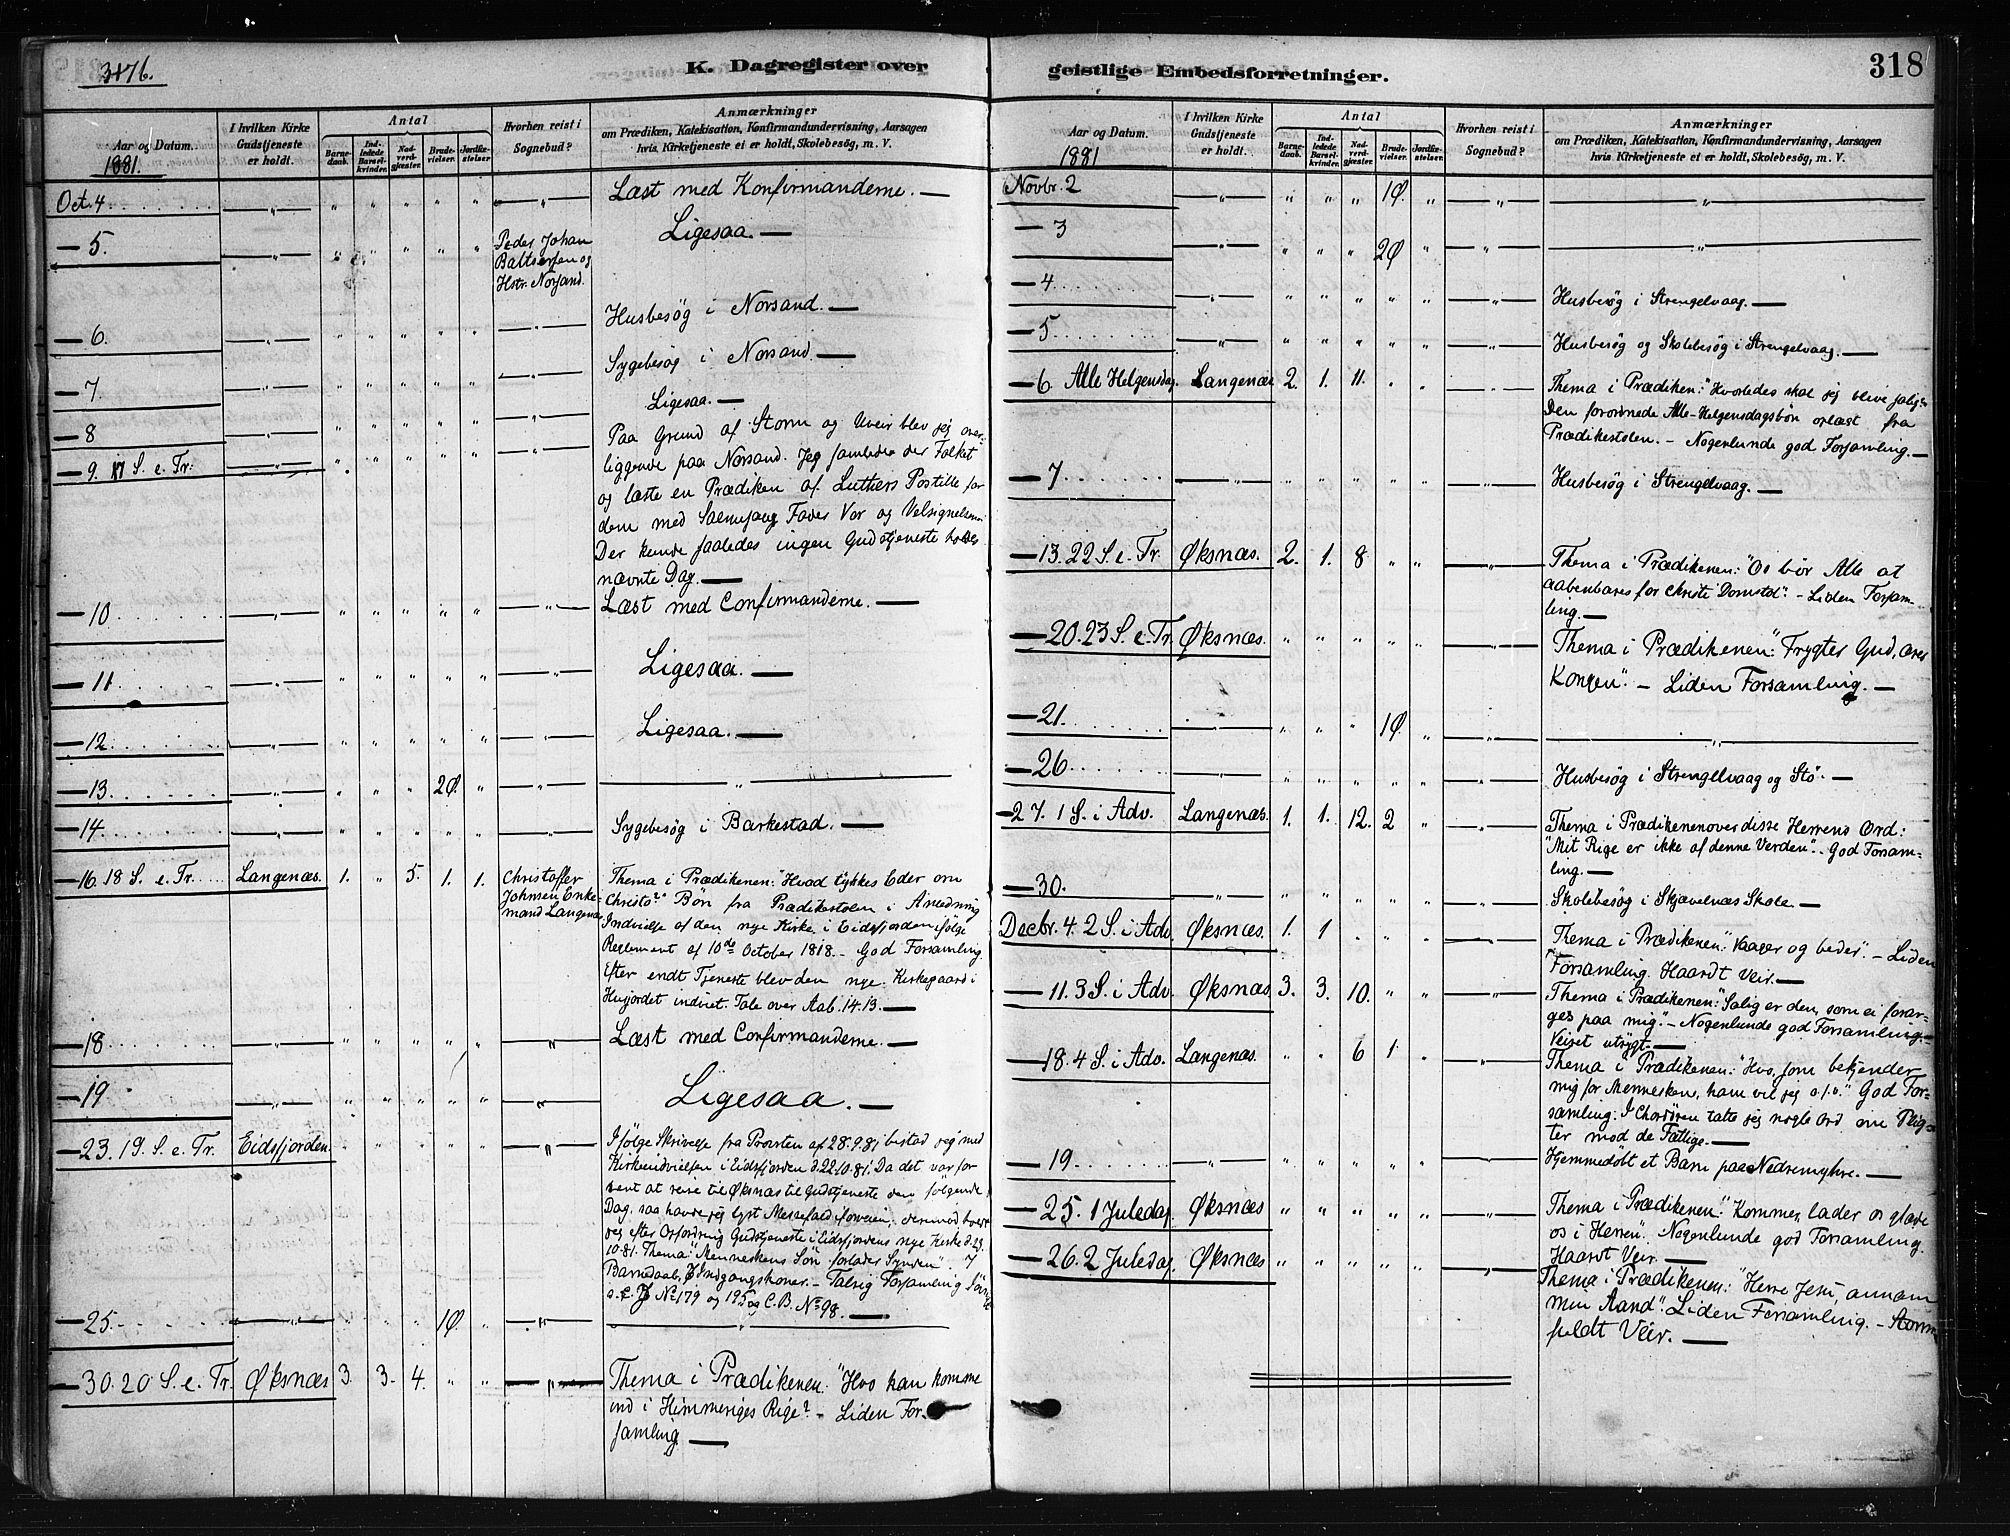 3176.
K. Dagregister over
Aar og Datum.
1881.
I hvilken Kirke Gudstjeneste er holdt.
Antal
Barnedaab.
Indledede Barselkvinder.
Nadverdgjester.
Brudevielser.
Jordfæstelser.
Hvorhen reist i Sognebud?
Anmærkninger
om Prædiken, Katekisation, Konfirmandundervisning, Aarsagen
hvis Kirketjeneste ei er holdt, Skolebesøg, m. V.
Oct. 4 „ „ „ „ „ „ „ Læst med Konfirmanderne. —
— 5. „ „ „ „ „ „ Peder Johan Ligesaa. —
Baltsersen og
Hstr. Norsand.
— 6. „ „ „ „ „ „ „ Husbesøg i Norsand. —
— 7 „ „ „ „ „ „ „ Sygebesøg i Norsand —
— 8 „ „ „ „ „ „ „ Ligesaa. —
— 9. 17 S. e. Tr. „ „ „ „ „ „ „ Paa Grund af Storm og Uveir blev jeg over-
liggende paa Norsand. Jeg samlede der Folket
og læste en Prædiken af Luthers Postille for
dem med Salmesang Fader Vor og Velsignelsen
Der kunde saaledes ingen Gudstjeneste holdes
nævnte Dag. —
— 10 „ „ „ „ „ „ „ Læst med Confirmanderne. —
— 11. „ „ „ „ „ „ „ Ligesaa. —
— 12 „ „ „ „ „ „ „ Ligesaa. —
— 13. „ „ „ „ 2Ø. „ „ „
— 14. „ „ „ „ „ „ „ Sygebesøg i Barkestad. —
— 16. 18 S. e. Tr. Langenæs. 1. „ 5. 1. 1. Christoffer Thema i Prædikenen: "Hvad tykkes Eder om
Johnsen Enke- Christo?" Bøn fra Prædikestolen i Anledning
mand Langenæs Indvielse af den nye Kirke i Eidsfjorden ifølge
Reglement af 10de October 1818. — God Forsamling
Efter endt Tjeneste blev den nye Kirkegaard i
indviet. Tale over Aab. 14.13. —
— 18 „ „ „ „ „ „ „ Læst med Confirmanderne. —
— 19 „ „ „ „ „ „ „ Ligesaa. —
— 23. 19. S. e. Tr. Eidsfjorden. „ „ „ „ „ „ Ifølge Skrivelse fra Provsten af 28.9.81 bistod jeg med
Kirkeindvielsen i Eidsfjorden d. 22.10.81. Da det var for
sent at reise til Øksnæs til Gudstjeneste den følgende
Dag, saa havde jeg lyst Messefald forveien; derimod holdt
jeg efter Opfordring Gudstjeneste i Eidsfjordens nye Kirke d. 23.
10.81. Thema: "Menneskens Søn forlader Synden". 7
Barnedaab, Indgangskoner. — Talrig Forsamling
No 179 og 195 og C.B. No 98. —
— 25. „ „ „ „ 1Ø. „ „ „
— 30. 20 S. e. Tr. Øksnæs 3. 3. 4. „ „ „ Thema i Prædikenen: "Hvo kan komme
ind i Himmeriges Rige?" — Liden For-
samling —
geistlige Embedsforretninger.
318
Aar og Datum.
1881
I hvilken Kirke Gudstjeneste er holdt.
Antal
Barnedaab.
Indledede Barselkvinder.
Nadverdgjester.
Brudevielser.
Jordfæstelser.
Hvorhen reist i Sognebud?
Anmærkninger
om Prædiken, Katekisation, Konfirmandundervisning, Aarsagen
hvis Kirketjeneste ei er holdt, Skolebesøg, m. V.
Novbr. 2 „ „ „ „ 1Ø. „ „ „
— 3 „ „ „ „ 2Ø „ „ „
— 4 „ „ „ „ „ „ „ Husbesøg i Strengelvaag. —
— 5 „ „ „ „ „ „ „ Husbesøg og Skolebesøg i Strengelvaag. —
— 6. Alle Helgensdag. Langenæs 2. 1. 11. „ „ „ Thema i Prædiken: "Hvorledes skal jeg blive salig?"
Den forordnede Alle-Helgensdagsbøn oplæst fra
Prædikestolen. — Nogenlunde god Forsamling. —
— 7 „ „ „ „ „ „ „ Husbesøg i Strengelvaag. —
— 13. 22 S. e. Tr. Øksnæs. 2. 1. 8. „ „ „ Thema i Prædikenen: "Os bør Alle at
aabenbares for Christi Domstol". — Liden Forsam-
ling. —
— 20. 23 S. e. Tr. Øksnæs. „ „ „ „ „ „ Thema i Prædikenen: "Frygter Gud, ærer
Kongen". — Liden Forsamling. —
— 21. „ „ „ „ 1Ø „ „ „
— 26 „ „ „ „ „ „ „ Husbesøg i Strengelvaag og Stø. —
— 27. 1 S. i Adv. Langenæs. 1. 1. 12. 2 „ „ Thema i Prædikenen over disse Herrens Ord:
"Mit Rige er ikke af denne Verden". God Forsam-
ling. —
— 30. „ „ „ „ „ „ „ Skolebesøg i Skjævelnæs Skole. —
Decbr. 4. 2 S. i Adv. Øksnæs. 1. 1 „ „ „ „ Thema i Prædikenen: "Vaager og beder". — Liden
Forsamling. Haardt Veir. —
— 11. 3 S. i Adv. Øksnæs 3. 3. 10. „ „ „ Thema i Prædikenen: "Salig er den, som ei forar-
ges paa mig." — Nogenlunde god Forsamling. —
Veiret utrygt. —
— 18. 4 S. i Adv. Langenæs. „ „ 6 1 „ „ Thema i Prædikenen: "Hvo, som bekjender
mig for Mennesken, ham vil jeg o.s.v." God For-
samling. I Chordøren talte jeg nogle Ord om Plig-
ter mod de Fattige. —
— 19 „ „ „ „ „ „ „ Hjemmedøbt et Barn paa Nedremyhre. —
— 25. 1 Juledag Øksnæs „ „ „ „ „ „ Thema i Prædikenen: "Kommer, lader os glæde
os i Herren". Nogenlunde god Forsamling.
Haardt Veir. —
— 26. 2 Juledag Øksnæs „ „ „ „ „ „ Thema i Prædikenen: "Herre Jesu, annam
min Aand". Liden Forsamling. — Storm-
fuldt Veir. —